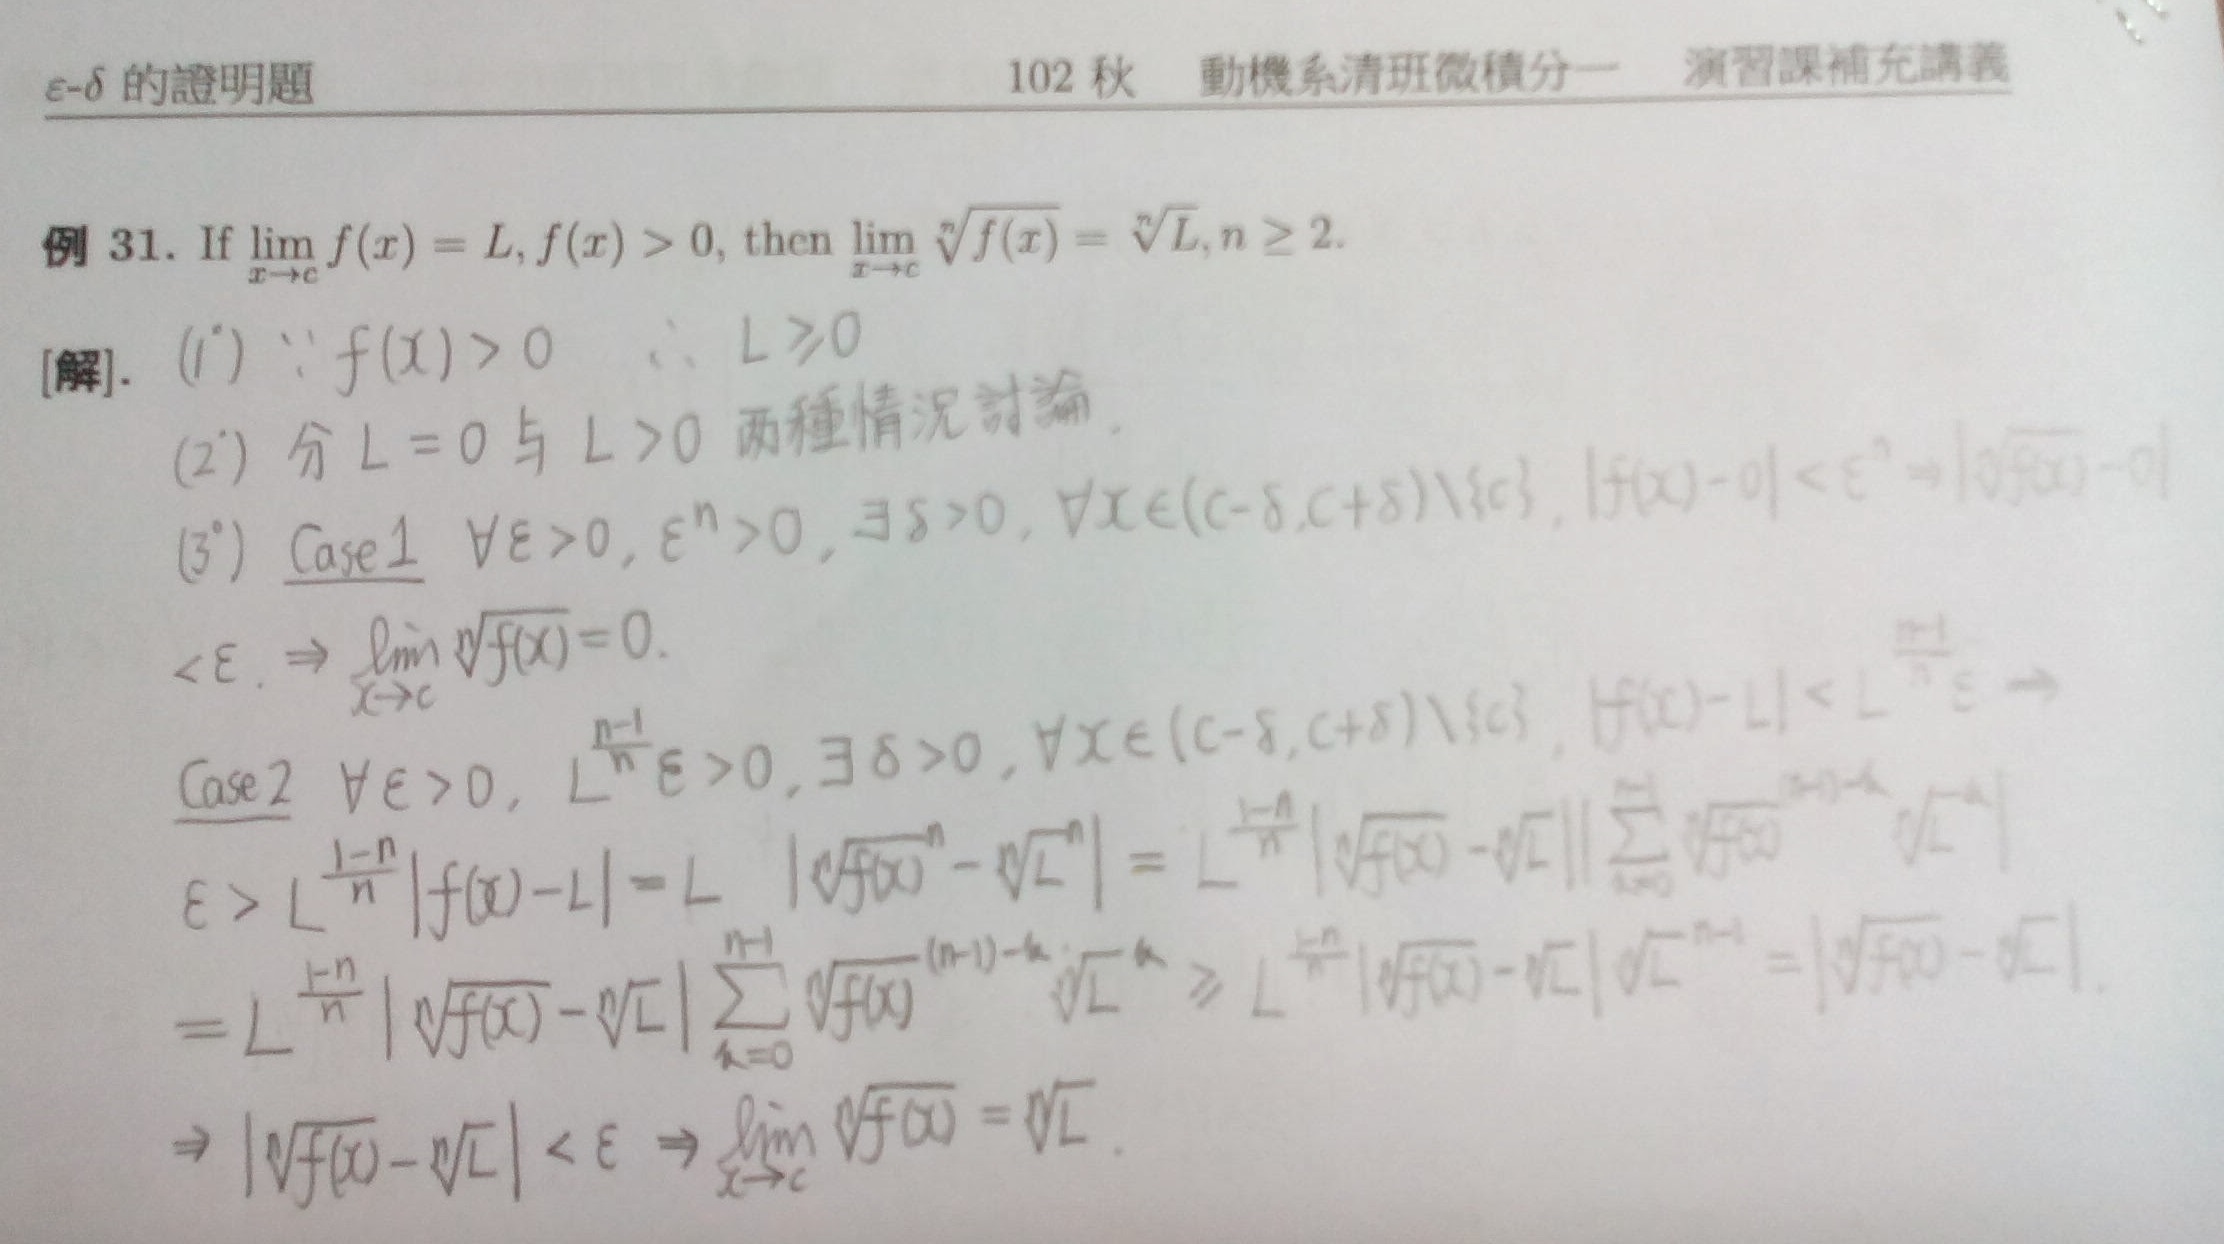 ε-δ 的證明題 102 秋 動機系清班微積分一 演習課補充講義
例 31. If lim_{x→c} f(x) = L, f(x) > 0, then lim_{x→c} ⁿ√f(x) = ⁿ√L, n ≥ 2.
[解]. (1°) ∵ f(x) > 0 ∴ L ≥ 0
(2°) 分 L = 0 与 L > 0 两種情況討論.
(3°) Case 1 ∀ε>0, εⁿ>0, ∃δ>0, ∀x∈(c-δ,c+δ)\{c}, |f(x)-0|<εⁿ ⇒ |ⁿ√f(x)-0|
<ε. ⇒ lim_{x→c} ⁿ√f(x) = 0.
Case 2 ∀ε>0, L^{(n-1)/n} ε>0, ∃δ>0, ∀x∈(c-δ,c+δ)\{c}, |f(x)-L|<L^{(n-1)/n} ε ⇒
ε > L^{(1-n)/n} |f(x)-L| = L |ⁿ√f(x)^n - ⁿ√L^n| = L^{(1-n)/n} |ⁿ√f(x) - ⁿ√L| |∑_{k=0}^{n-1} ⁿ√f(x)^{(n-1)-k} ⁿ√L^k|
= L^{(1-n)/n} |ⁿ√f(x) - ⁿ√L| ∑_{k=0}^{n-1} ⁿ√f(x)^{(n-1)-k} ⁿ√L^k ≥ L^{(1-n)/n} |ⁿ√f(x) - ⁿ√L| ⁿ√L^{n-1} = |ⁿ√f(x) - ⁿ√L|.
⇒ |ⁿ√f(x) - ⁿ√L| < ε ⇒ lim_{x→c} ⁿ√f(x) = ⁿ√L.